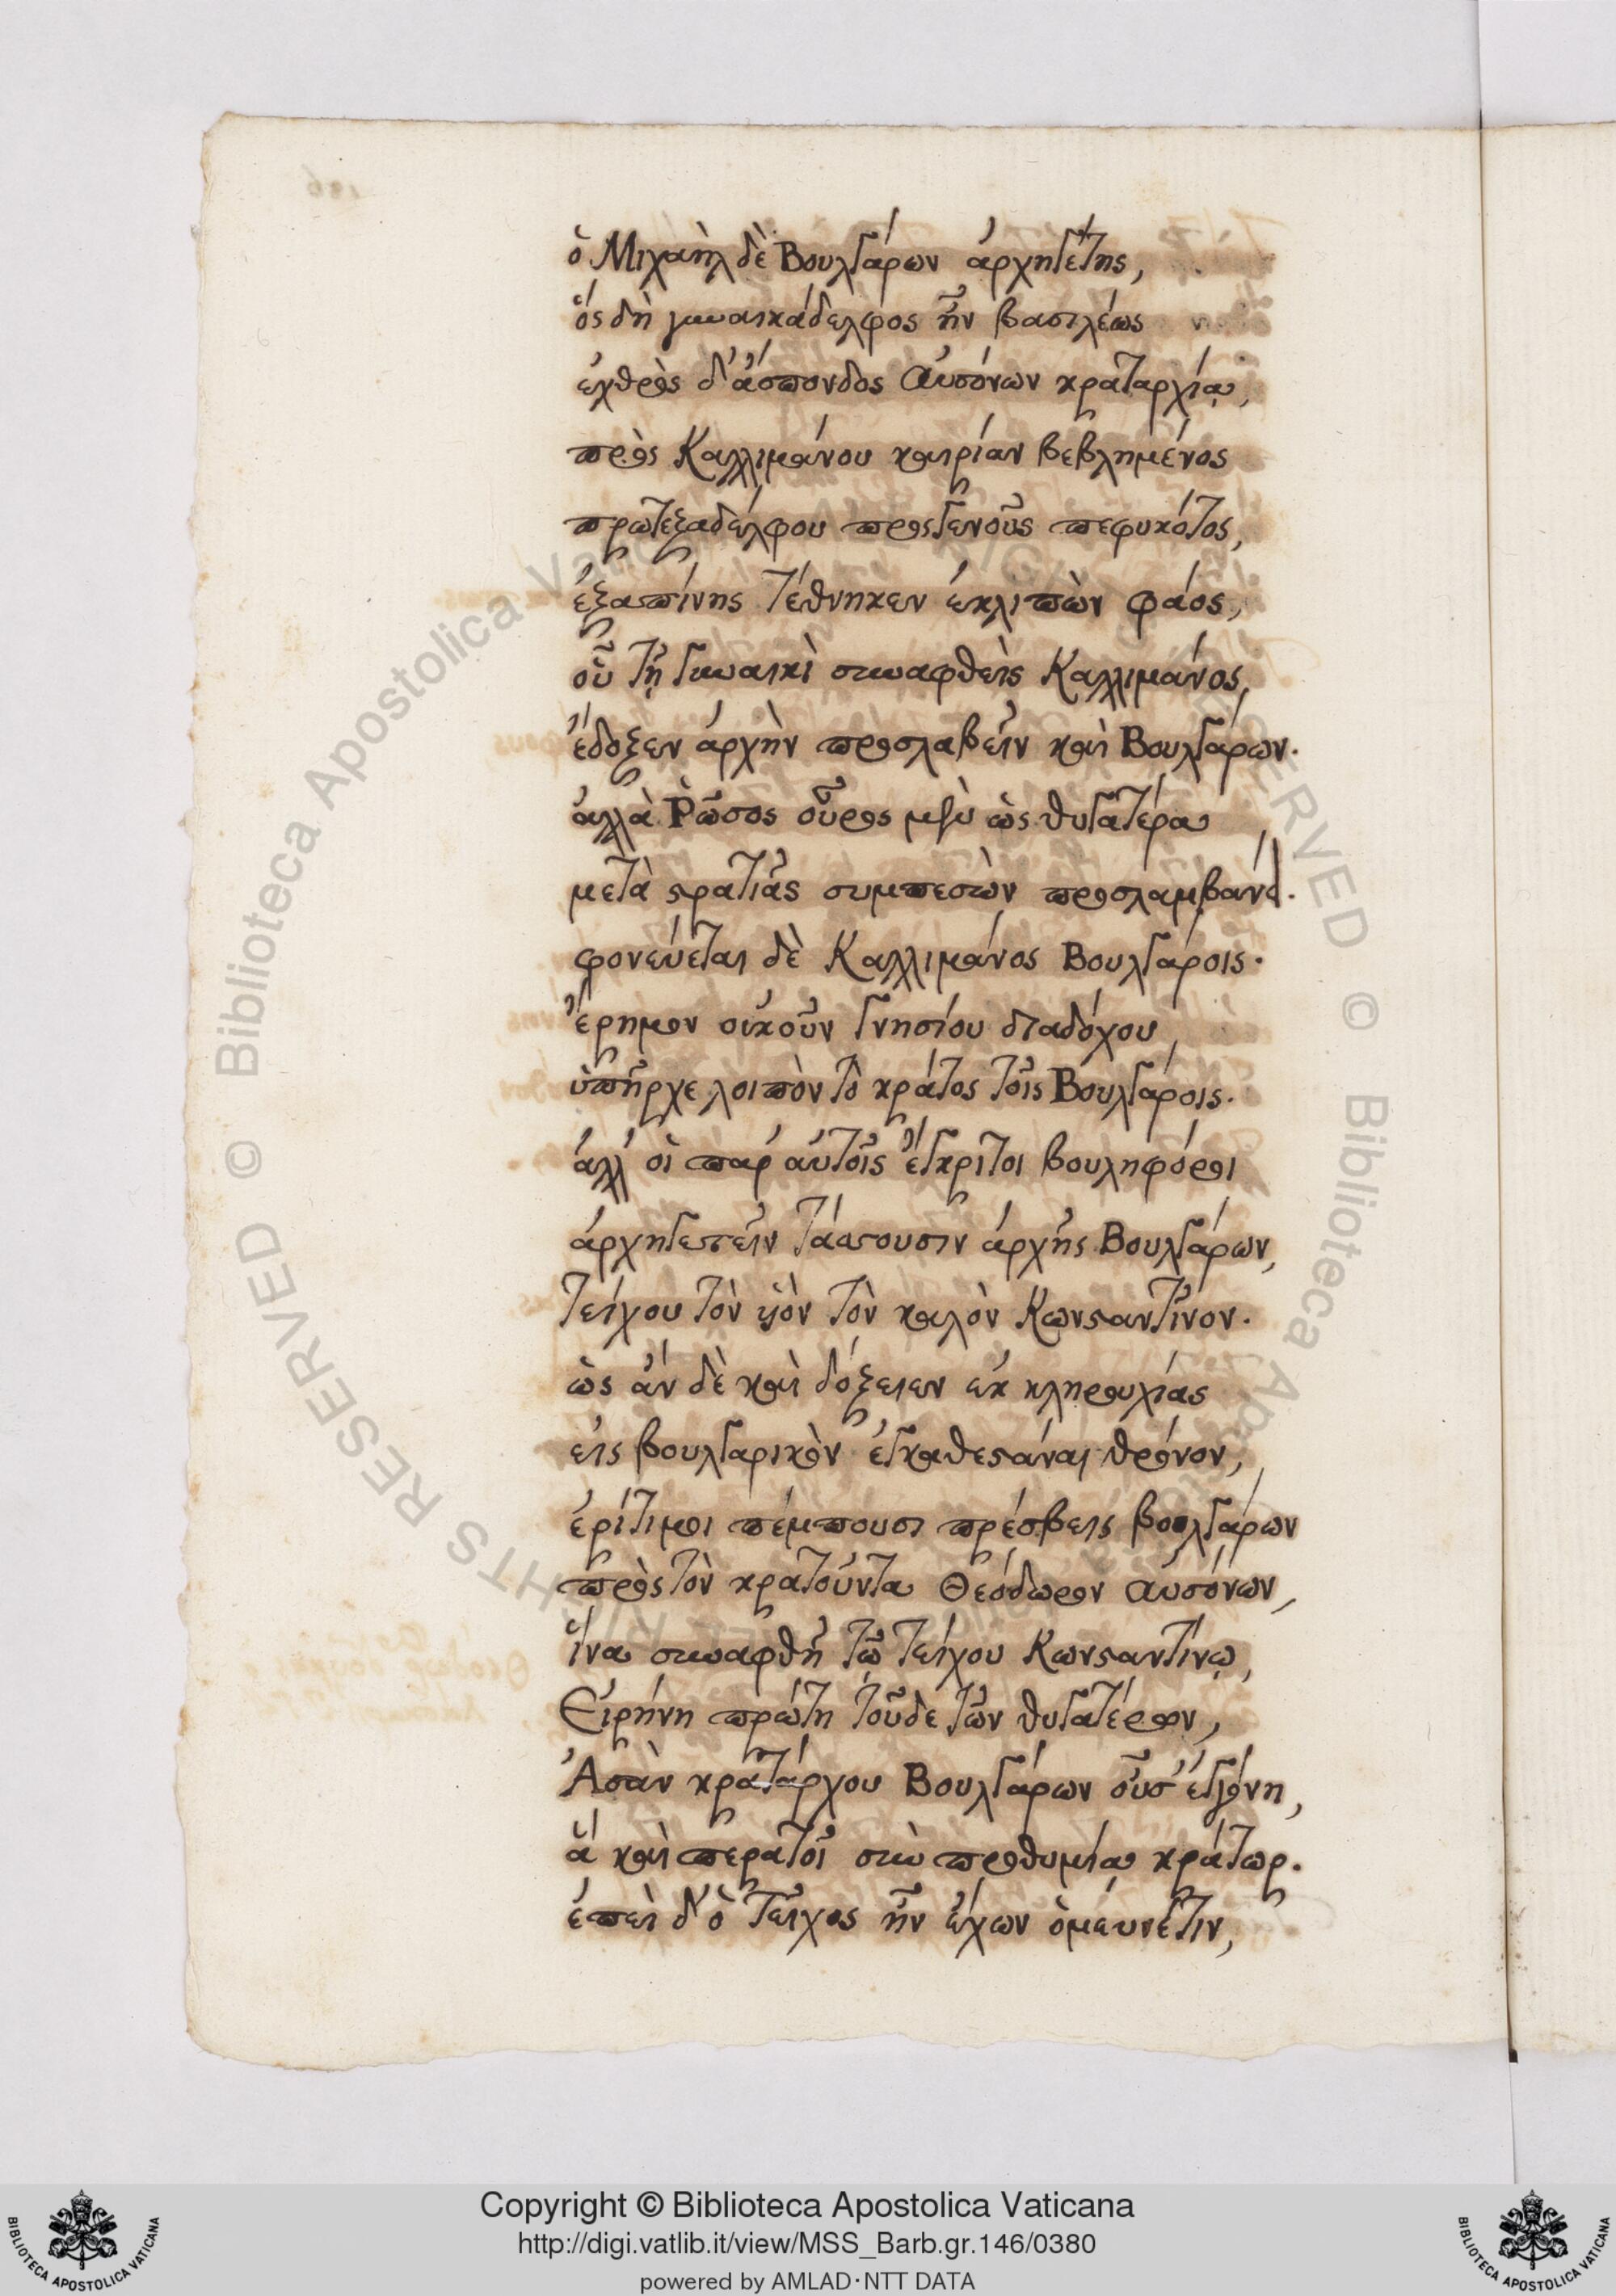 ὁ Μιχαὴλ δὲ Βουλγάρων ἀρχηγέτης,
ὅς δὴ γυναικάδελφος ἦν βασιλέως
ἐχθρὸς δ' ἄσπονδος Αὐσόνων κραταρχίᾳ,
πρὸς Καλλιμάνου καιρίαν βεβλημένος
πρωτεξαδέλφου πρὸς γένους πεφυκότος,
ἐξαπίνης τέθνηκεν ἐκλιπὼν φάος,
οὗ τῇ γυναικὶ συναφθεὶς Καλλιμάνος,
ἔδοξεν ἀρχὴν προσλαβεῖν καὶ Βουλγάρων.
ἀλλὰ Ῥῶσος οὖρος μὲν ὡς θυγατέρα
μετὰ στρατιᾶς συμπεσὼν προσλαμβάνει.
φονεύεται δὲ Καλλιμάνος Βουλγάροις.
ἔρημον οὐκοῦν γνησίου διαδόχου
ὑπῆρχε λοιπὸν τὸ κράτος τοῖς Βουλγάροις.
ἀλλ' οἱ παρ' αὐτοῖς ἔγκριτοι βουληφόροι
ἀρχηγετεῖν τάττουσιν ἀρχῆς Βουλγάρων,
Τείχου τὸν ὑὸν τὸν καλὸν Κωνσταντῖνον.
ὡς ἂν δὲ καὶ δόξειεν ἐκ κληρουχίας
εἰς βουλγαρικὸν ἐγκαθεστάναι θρόνον,
ἐρίτιμοι πέμπουσι πρέσβεις βουλγάρων
πρὸς τὸν κρατοῦντα Θεόδωρον αὐσόνων,
ἵνα συναφθῇ τῷ Τείχου Κωνσταντίνῳ,
Εἰρήνη πρώτη τοῦδε τῶν θυγατέρων,
Ἀσὰν κρατάρχου Βουλγάρων οὖσ' ἐγγόνη,
ἃ καὶ περατοῖ σὺν προθυμίᾳ κράτωρ.
ἐπεὶ δ' ὁ Τεῖχος ἦν ἔχων ὁμευνέτιν,
Copyright © Biblioteca Apostolica Vaticana
http://digi.vatlib.it/view/MSS_Barb.gr.146/0380
powered by AMLAD·NTT DATA